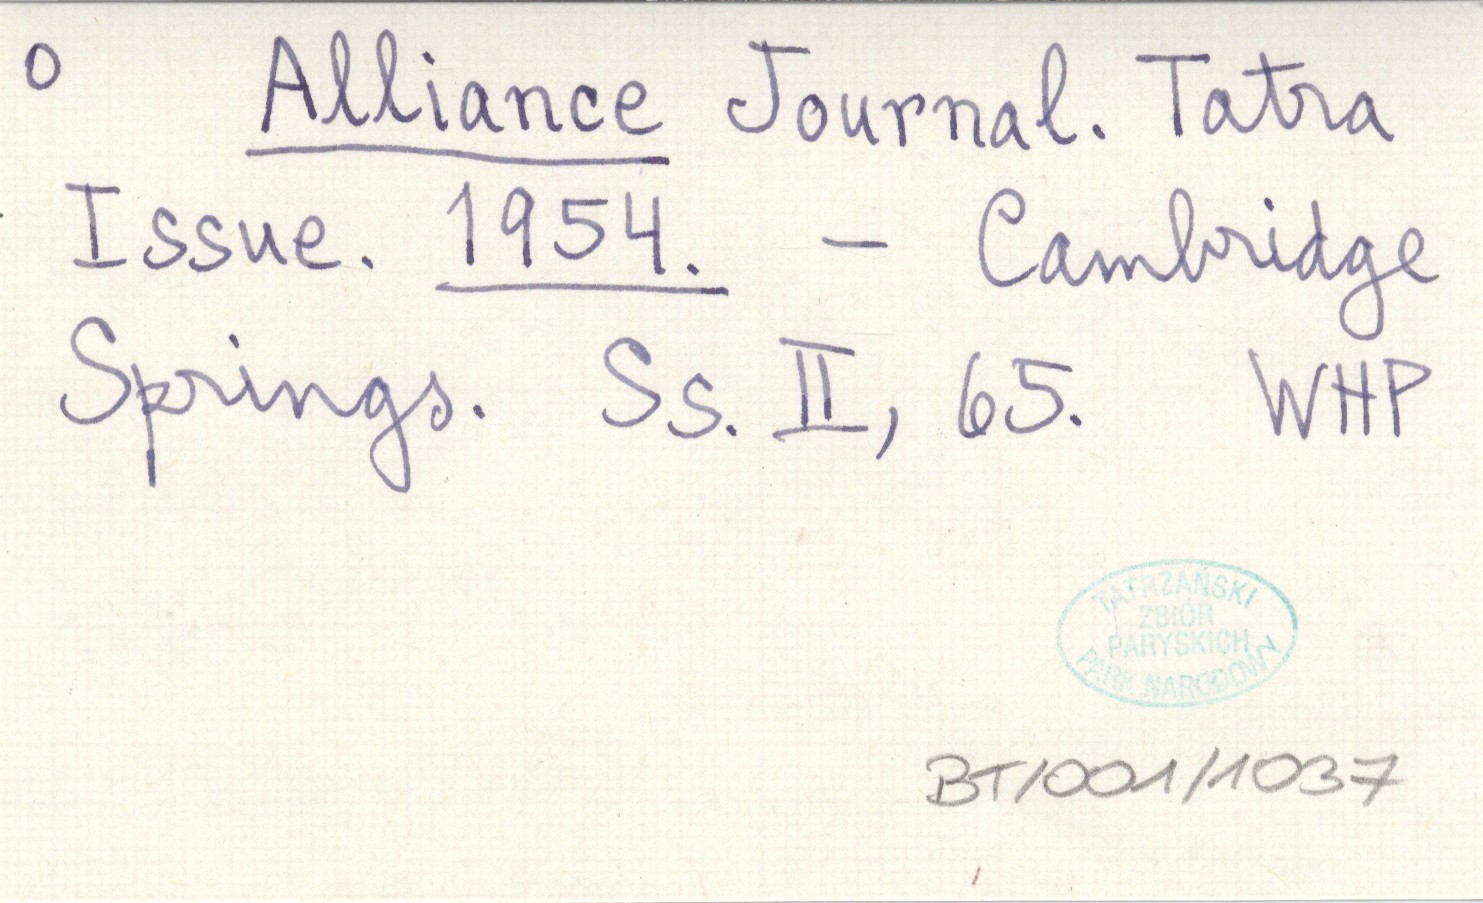 o Alliance Journal. Tatra
Issue. 1954. – Cambridge
Springs. Ss. II, 65. WHP
TATRZAŃSKI
ZBIÓR
PARYSKICH
PARK NARODOWY
BT/001/1037